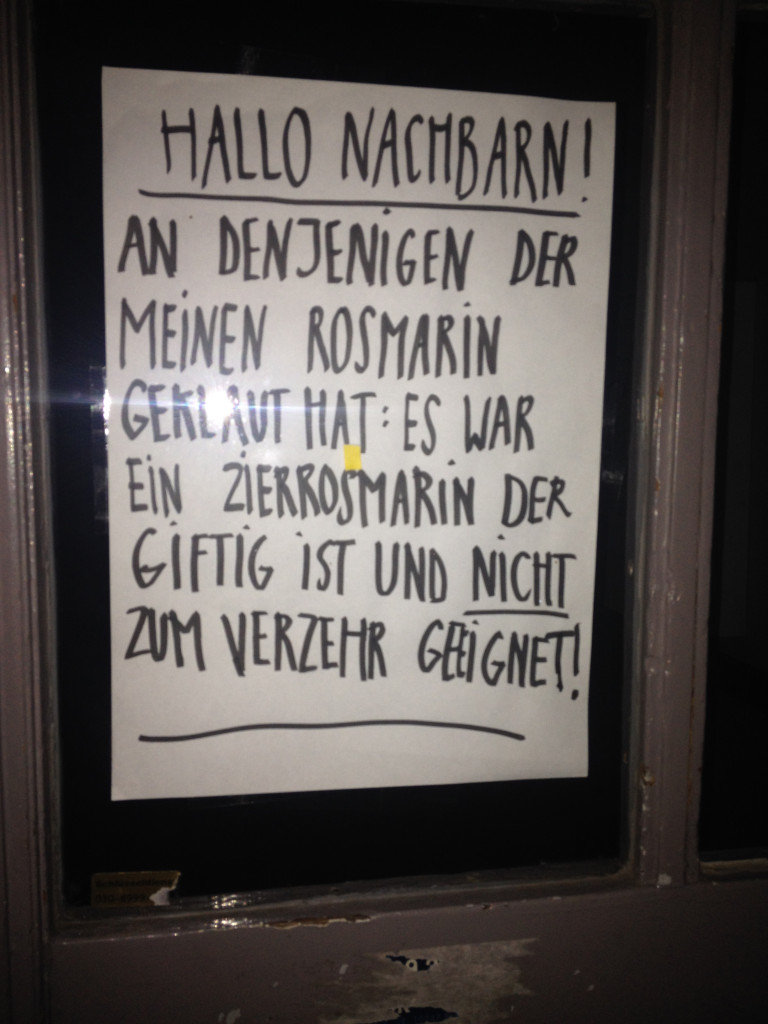 HALLO NACHBARN!
AN DENJENIGEN DER
MEINEN ROSMARIN
GEKLAUT HAT: ES WAR
EIN ZIERROSMARIN DER
GIFTIG IST UND NICHT
ZUM VERZEHR GEEIGNET!